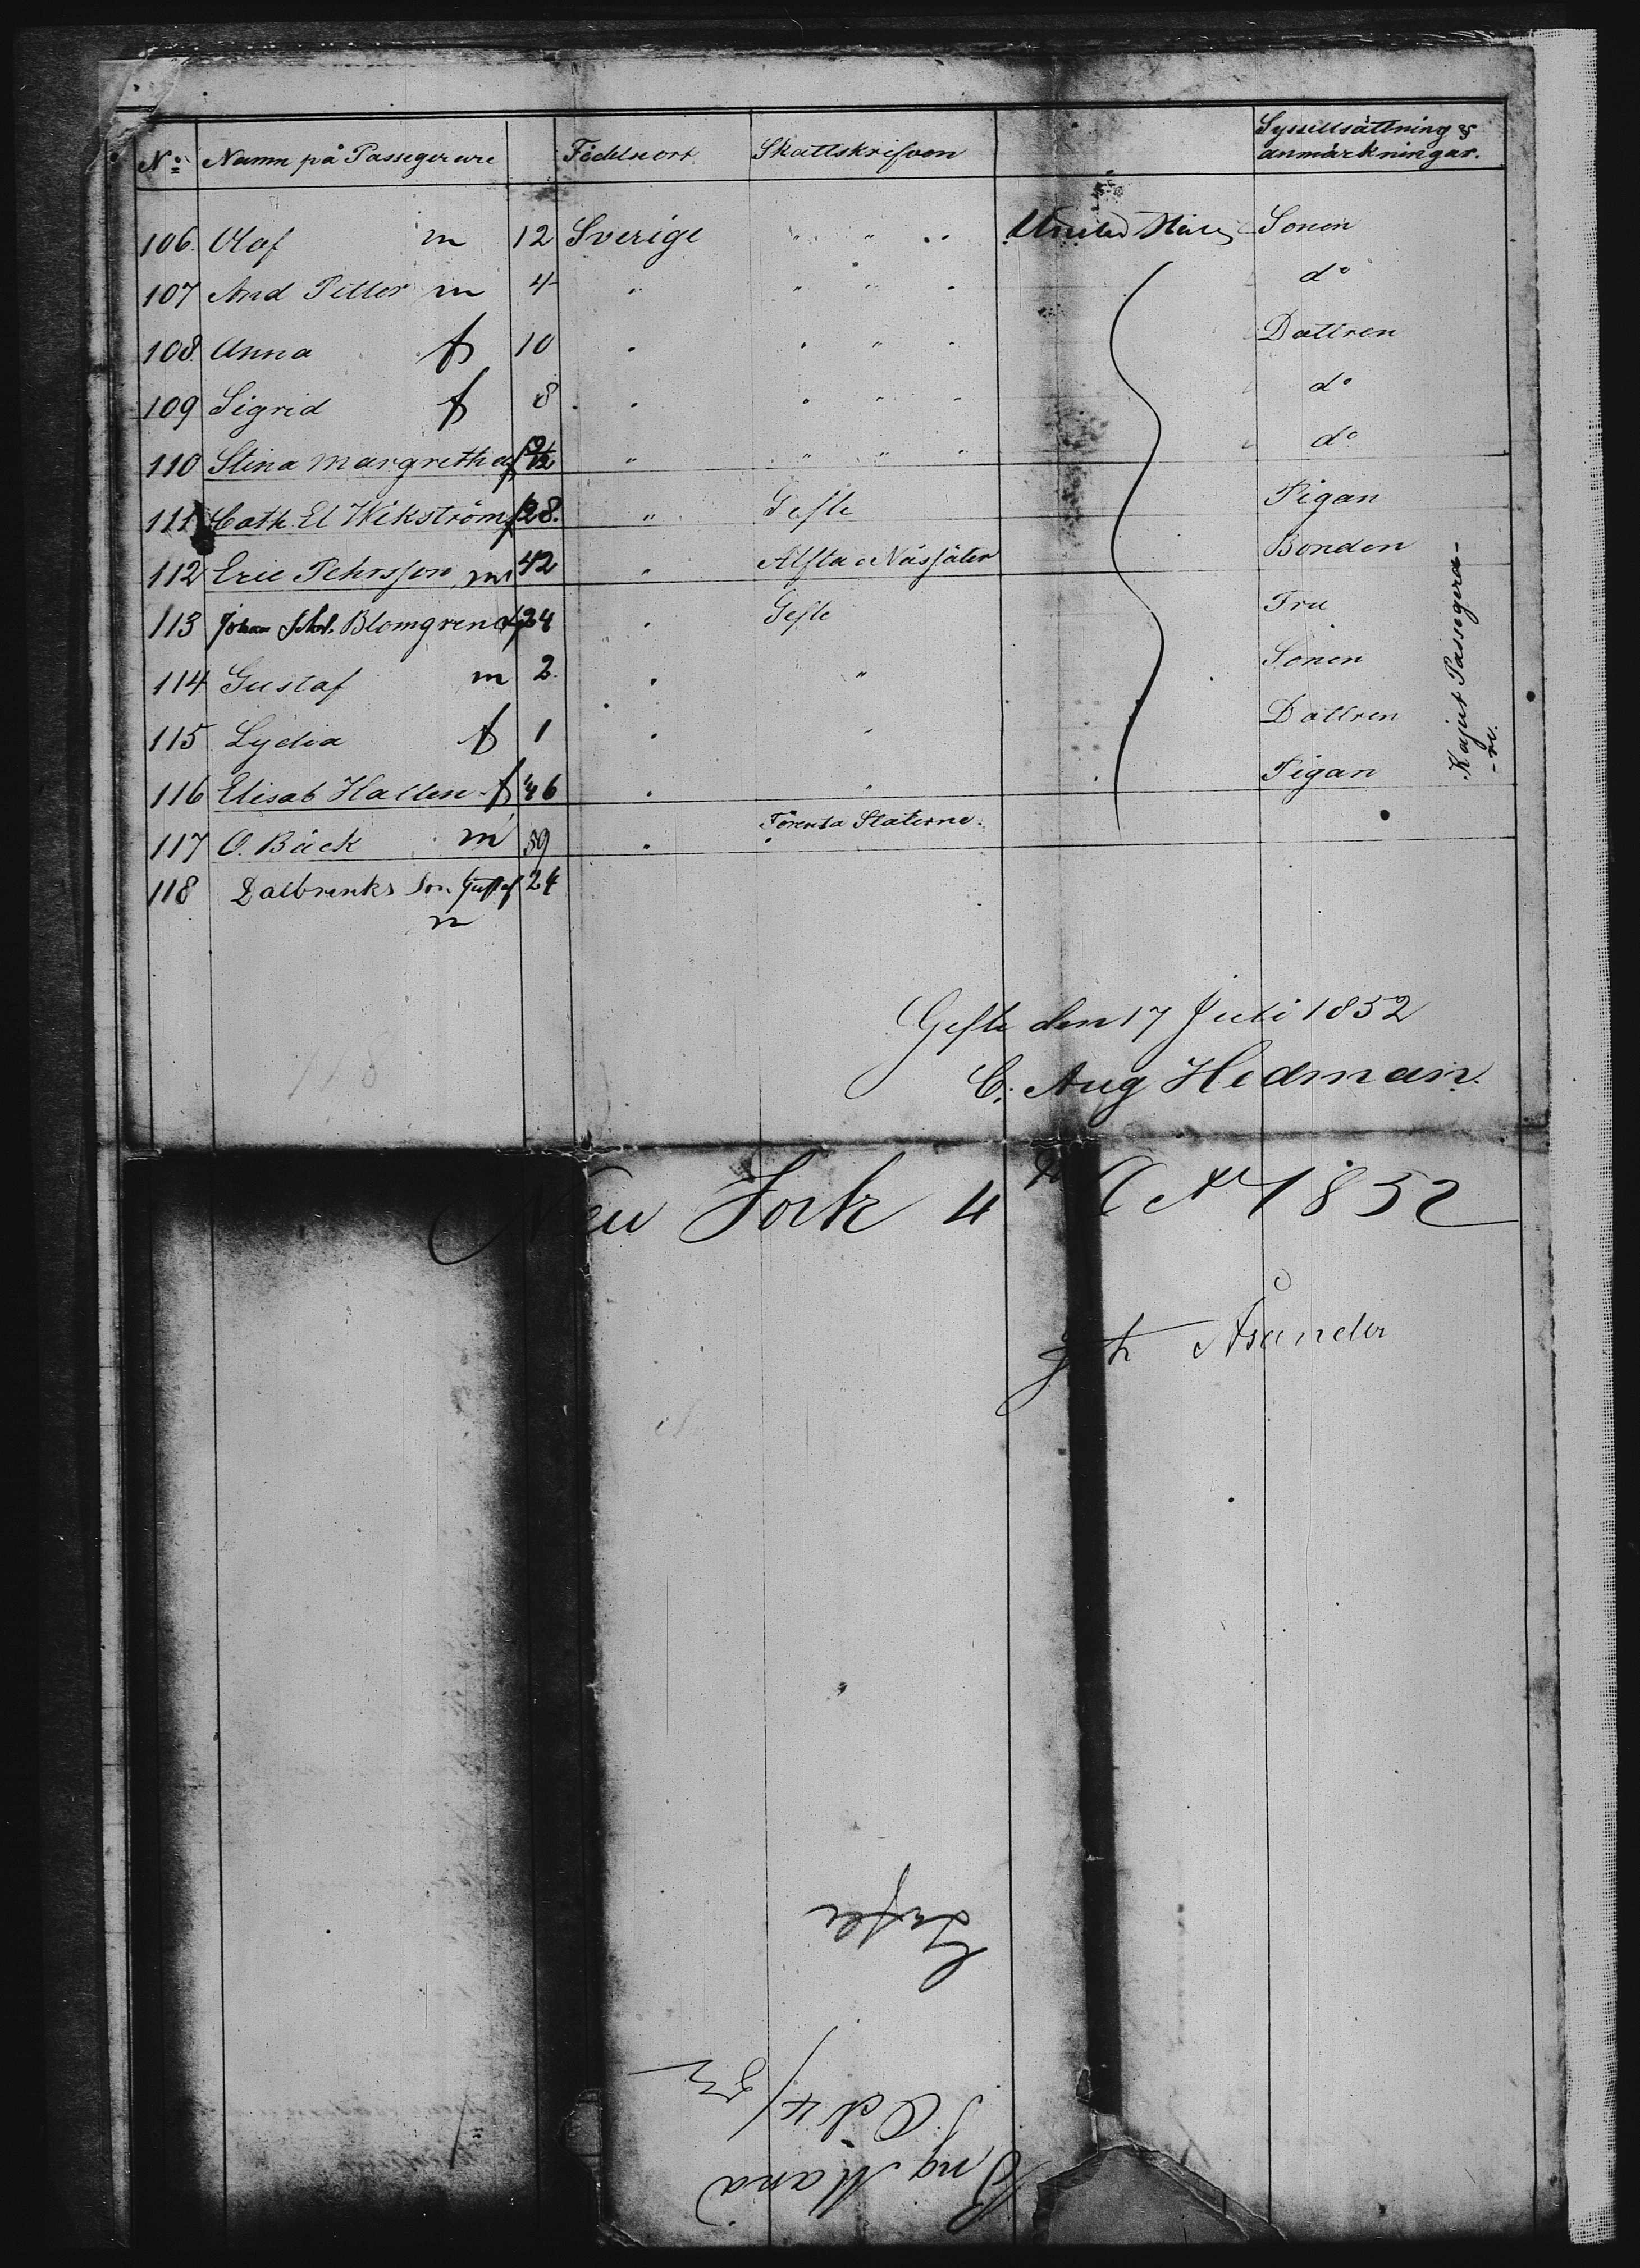 No Namn på Passegerare Födelseort Skattskrifven Sysselsättning &
anmärkningar.
106. Olof m 12 Sverige " " " United States Sonen
107 And Petter m 4 " " " " do
108 Anna f 10 " " " " Dottren
109 Sigrid f 8 " " " " do
110 Stina Margretha f 9/12 " " " " do
111 Cath. El Wikström f 28. " Gefle Pigan
112 Eric Pehrsson m 42 " Alfta o Näsjäter Bonden
113 Blomgren f 24 " Gefle Fru
114 Gustaf m 2. " " Sonen
115 Lydia f 1 " " Dottren
116 Elisab Hallen f 46 " " Pigan
117 O. Bäck m 39 " Förenta Staterne.
118 Son Gustaf 24
m
Kajut Passegera-
-re.
Gefle den 17 Juli 1852
C. Aug Hedman.
118
New York 4th Oct 1852
Åsander
Gefle
Brig Maria
Oct 4/52